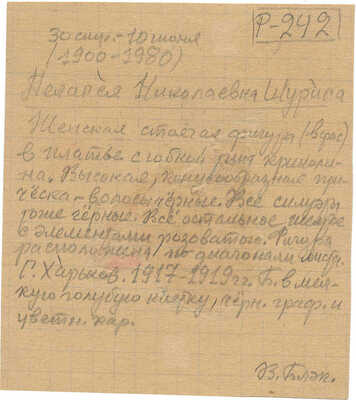 Р-242
10 июня
(1900-1980)
Пелагея Николаевна Шуриса
Женская стоячая фигура (-вфас)
в платье с юбкой типа криноли-
на. Высокая, конусообразная при-
чёска - волосы чёрные. Все
тоже чёрные. Всё остальное
с элементами розоватое. Фигура
расположена по диагонали
Г. Харьков. 1917-1919 гг. Б. в мел-
кую голубую клетку, чёрн. граф. и
цветн. кар.
В. Блэк.